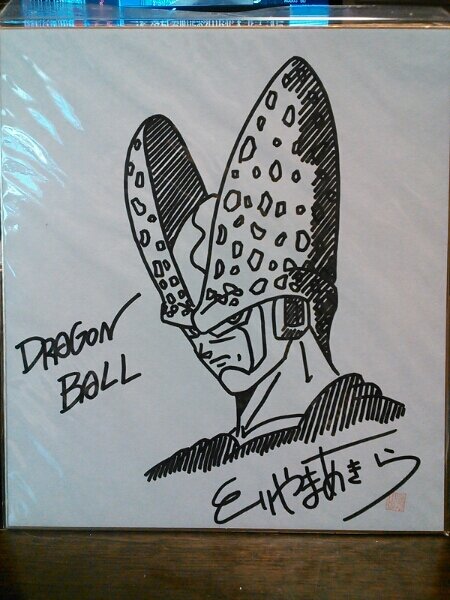 DRAGON
BALL
とりやまあきら